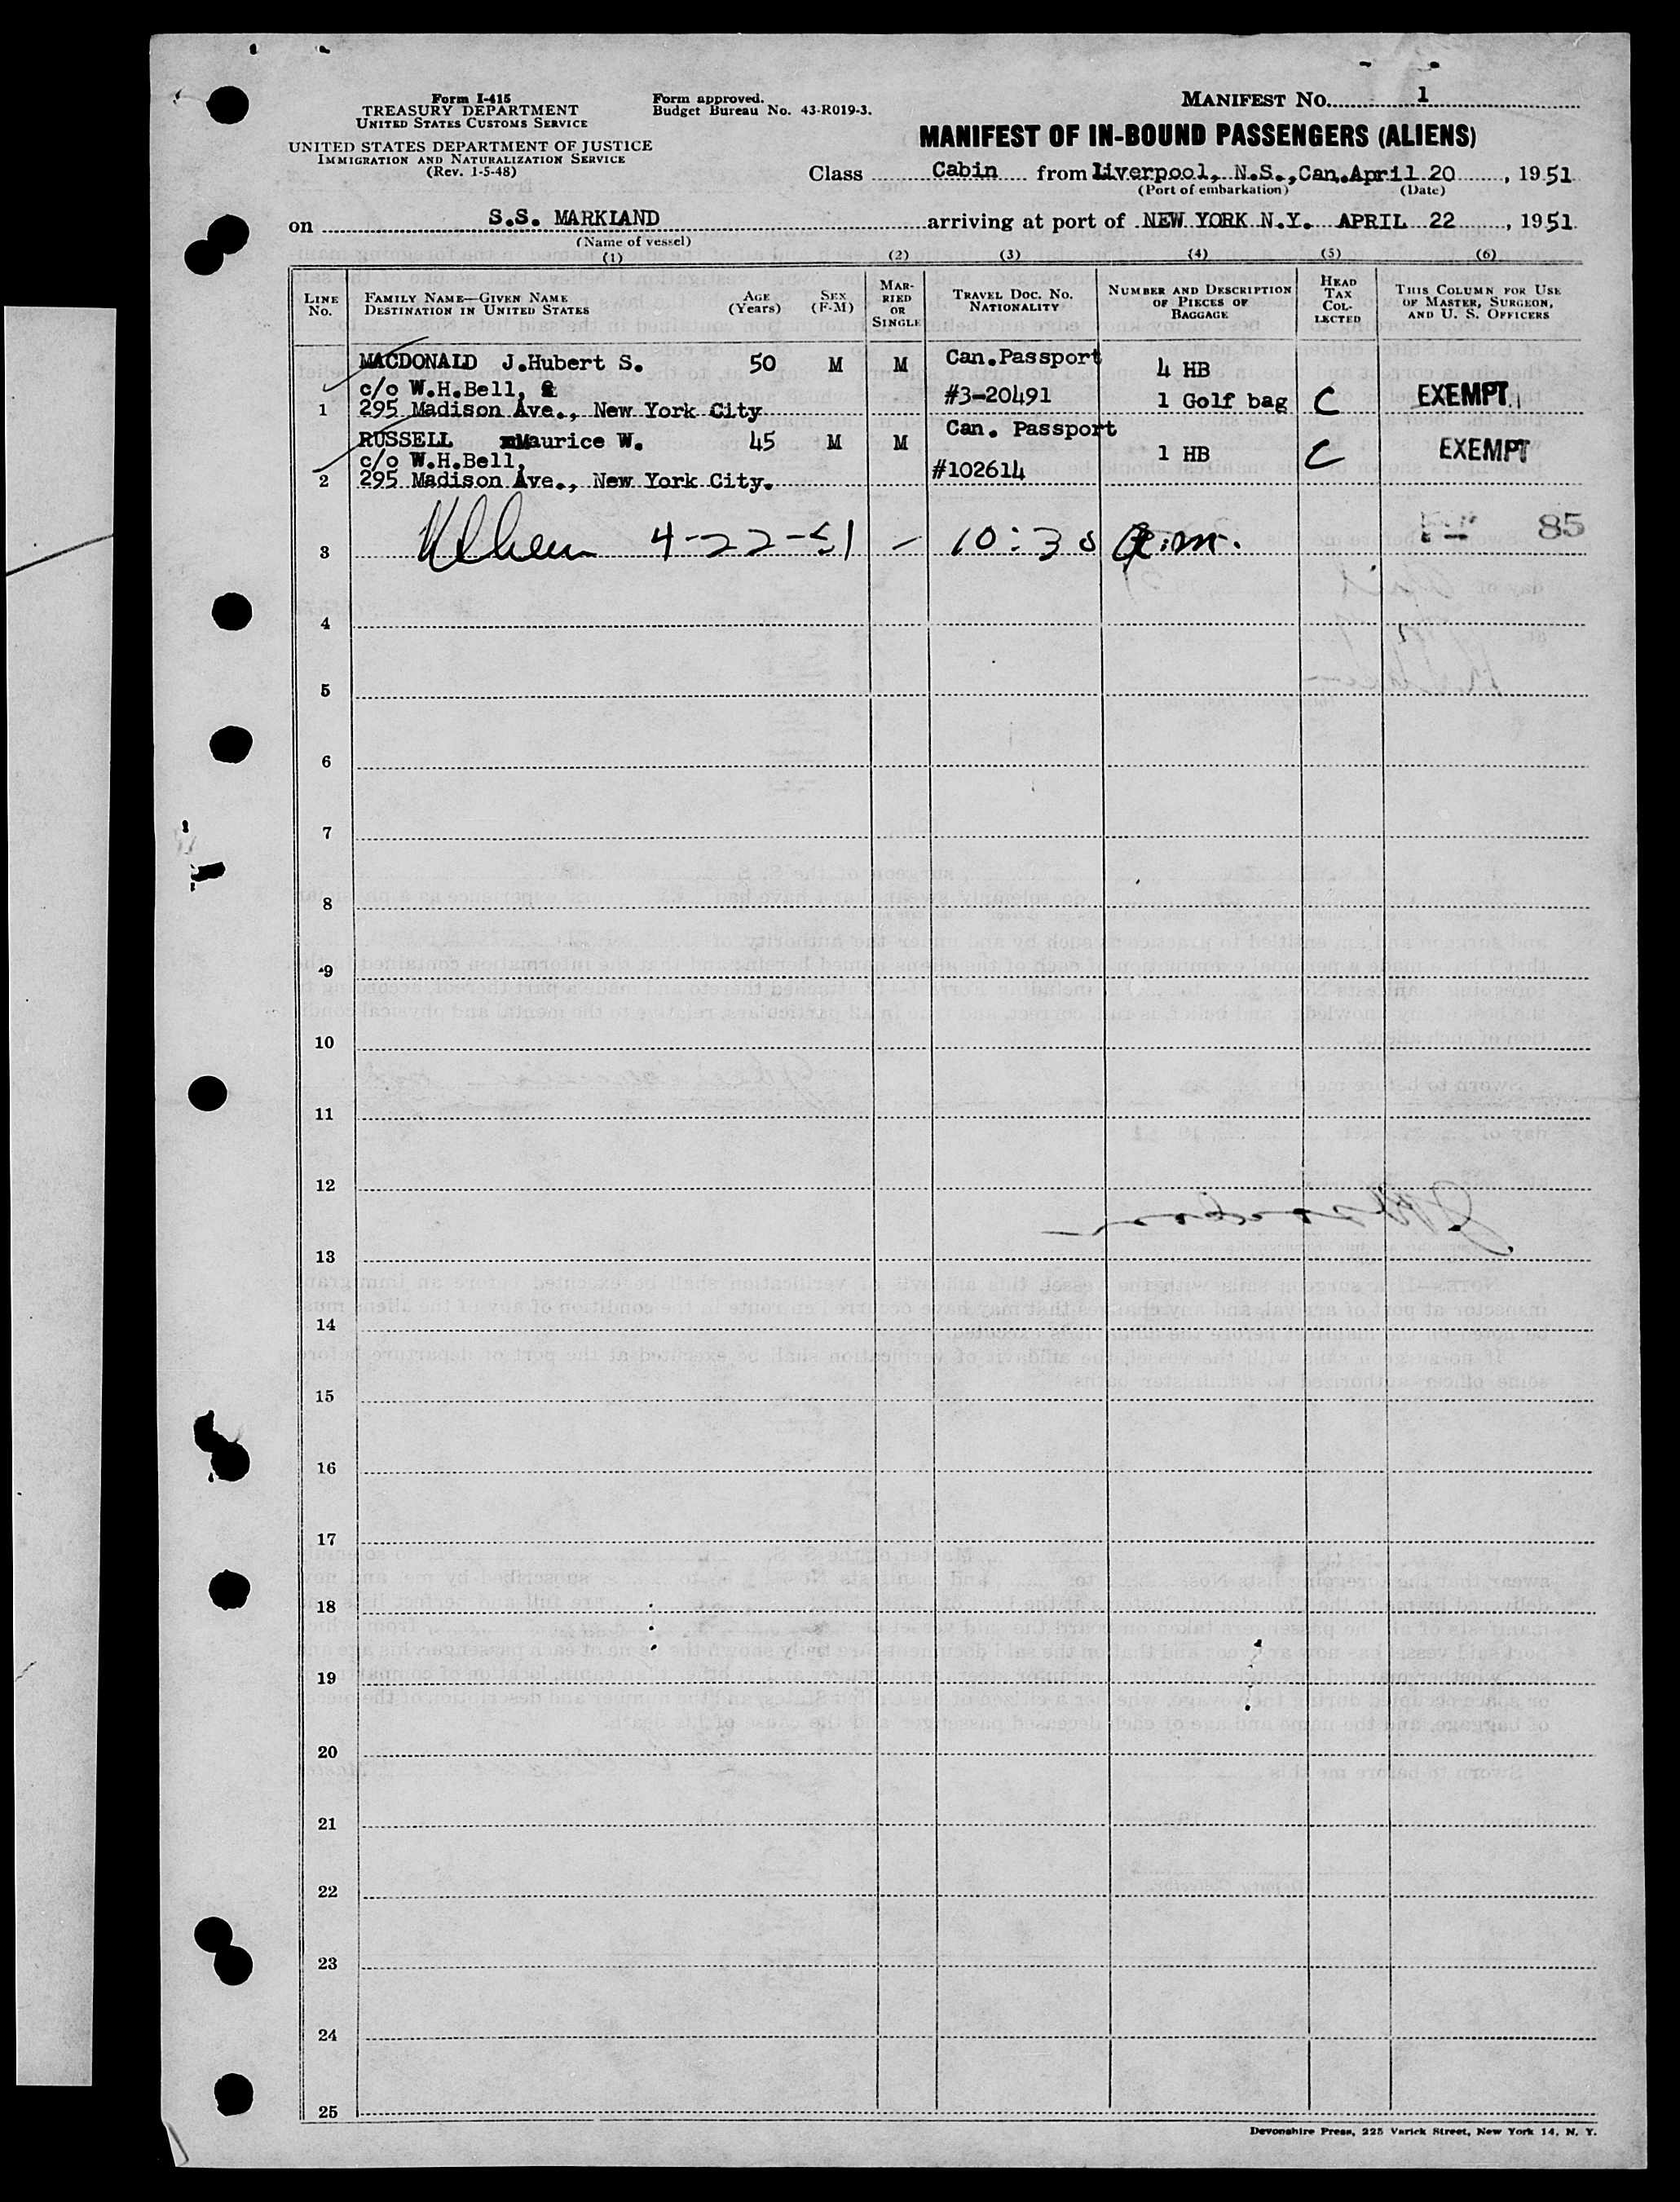 Form I-415
TREASURY DEPARTMENT
UNITED STATES CUSTOMS SERVICE
UNITED STATES DEPARTMENT OF JUSTICE
IMMIGRATION AND NATURALIZATION SERVICE
(Rev. 1-5-48)
Form approved.
Budget Bureau No. 43-R019-3.
MANIFEST NO. 1
MANIFEST OF IN-BOUND PASSENGERS (ALIENS)
Class Cabin from Liverpool, N.S.,Can.April 20, 1951
(Port of embarkation) (Date)
on S.S. MARKLAND arriving at port of NEW YORK N.Y. APRIL 22, 1951
(Name of vessel)
(1) (2) (3) (4) (5) (6)
LINE NO.
FAMILY NAME—GIVEN NAME
DESTINATION IN UNITED STATES
AGE (Years)
SEX (F-M)
MARRIED OR SINGLE
TRAVEL DOC. NO.
NATIONALITY
NUMBER AND DESCRIPTION OF PIECES OF BAGGAGE
HEAD TAX COLLECTED
THIS COLUMN FOR USE OF MASTER, SURGEON, AND U. S. OFFICERS
MACDONALD J.Hubert S. 50 M M Can.Passport 4 HB
c/o W.H.Bell, #3-20491 EXEMPT
1 295 Madison Ave., New York City 1 Golf bag C
RUSSELL Maurice W. 45 M M Can. Passport EXEMPT
c/o W.H.Bell, 1 HB C
2 295 Madison Ave., New York City. #102614
3 4-22-51 - 10:30 a.m. 85
4
5
6
7
8
9
10
11
12
13
14
15
16
17
18
19
20
21
22
23
24
25
Devonshire Press, 225 Varick Street, New York 14, N. Y.